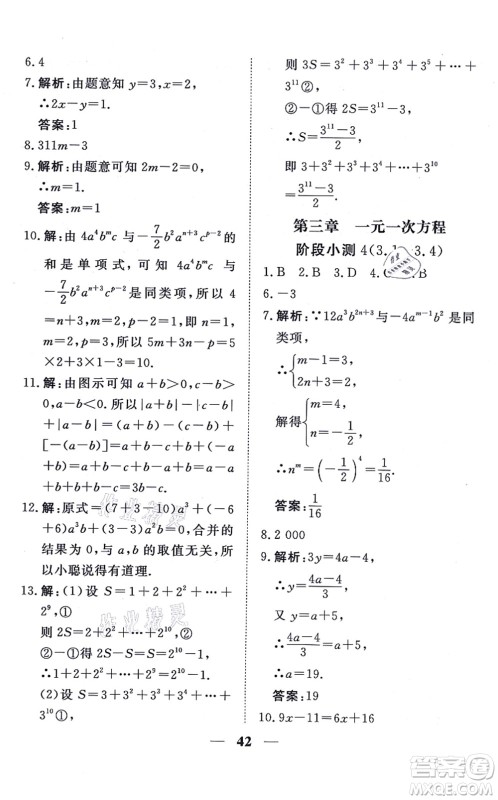 6.4
7.解析:由题意知 y=3,x=2,
∴2x-y=1.
答案:1
8.311m-3
9.解析:由题意可知 2m-2=0,
∴m=1.
答案:1
10.解:由 4a⁴bᵐc 与 -7/2 b²aⁿ⁺³cᵖ⁻² 的
和是单项式,可知 4a⁴bᵐc 与
-7/2 b²aⁿ⁺³cᵖ⁻² 是同类项,所以
4=n+3,m=2,p=3,所以 5×2
×2×3×1-3=57.
11.解:由图示可知 a+b>0,c-a<0,
a-b<0.所以 |a+b|-|c-a|
+|a-b|=(a+b)-(a-c)+
[-(a-b)]=(a+b)+(c-a)
+(b-a)=a+b+c-a+b-a=
3b-a+c.
12.解:原式=(7+3-10)a³+(-6
+6)a³b+(3-3)a²b,合并的
结果为 0,与 a,b 的取值无关,
所以小聪说得有道理.
13.解:(1)设 S=1+2+2²+…+
2⁹,①
则 2S=2+2²+…+2¹⁰,②
∴②-①,得 2S-S=S=2¹⁰-1.
∴1+2+2²+…+2⁹=2¹⁰-1.
(2)设 S=3+3²+3³+3⁴+…
3¹⁰①,
则 3S=3²+3³+3⁴+3⁵+…+
3¹¹②
②-①,得 2S=3¹¹-3,
∴S=(3¹¹-3)/2.
即 3+3²+3³+3⁴+…+3¹⁰
=(3¹¹-3)/2.
第三章 一元一次方程
阶段小测 4(3. 3.4)
1.B 2.B 3.D 4. 5.B
6.-3
7.解析:∵12a³b²ⁿ⁺³与-4aᵐ⁻¹b²是同
类项,
∴{m-1=3,
2n+3=2,
解得{m=4,
n=-1/2,
∴nᵐ=(-1/2)⁴=1/16.
答案:1/16
8.2 000
9.解析:3y=4a-4,
∴y=(4a-4)/3.
又 y=a+5,
∴(4a-4)/3=a+5,
∴a=19.
答案:19
10.9x-11=6x+16
42
作业精灵
作业精灵
答案圈
MXQE.COM